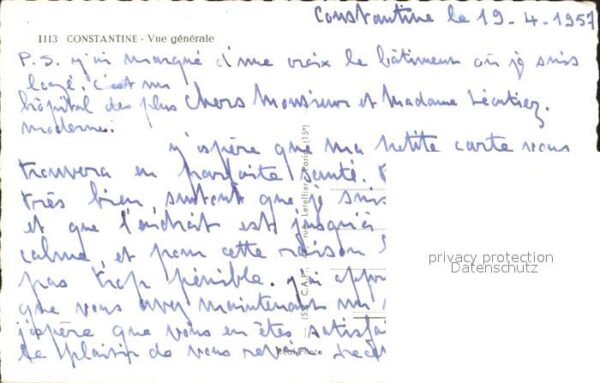 Constantine le 19-4-1957
1113 CONSTANTINE - Vue générale
P.S. j'ai marqué d'une croix le bâtiment où je suis
logé. C'est un
hôpital des plus
moderne.
Chers Monsieur et Madame
J'espère que ma petite carte vous
trouvera en parfaite santé.
très bien, surtout que je suis
et que l'endroit est jusqu'à
calme, et pour cette raison
pas trop pénible. J'ai
que vous avez maintenant un
j'espère que vous en êtes
le plaisir de vous
rue Letellier, Paris (15e)
privacy protection
Datenschutz